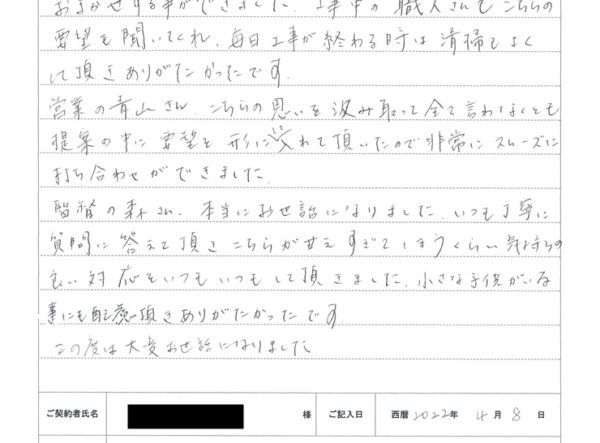 お任せする事ができました。工事中の職人さんもこちらの
要望も聞いてくれ、毎日工事が終わる時は清掃もよく
して頂きありがたかったです。
営業の青山さん、こちらの思いを汲み取って全て言わなくとも
提案の中に要望を形に入れて頂いたので非常にスムーズに
打ち合わせができました。
監督の森さん、本当にお世話になりました。いつも丁寧に
質問に答えて頂きこちらが甘えすぎてしまうくらい気持ちの
良い対応をいつもいつもして頂きました。小さな子供がいる
事にも配慮頂きありがたかったです。
この度は大変お世話になりました
ご契約者氏名 様 ご記入日 西暦 2022年 4月 8日